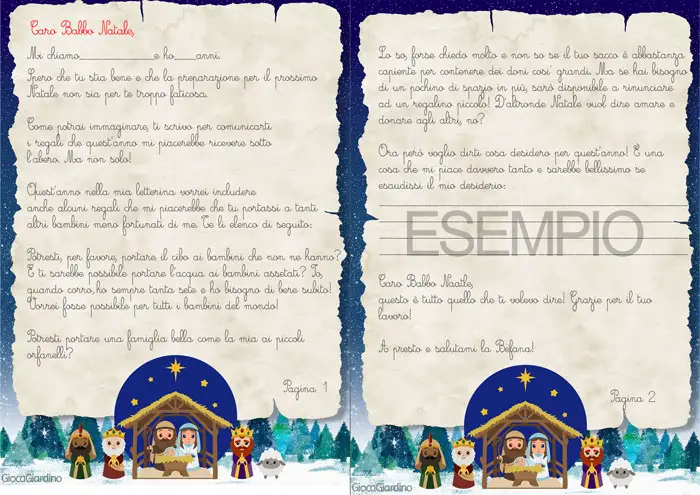 Caro Babbo Natale,
Mi chiamo____________e ho____anni.
Spero che tu stia bene e che la preparazione per il prossimo
Natale non sia per te troppo faticosa.
Come potrai immaginare, ti scrivo per comunicarti
i regali che quest'anno mi piacerebbe ricevere sotto
l'abero. Ma non solo!
Quest'anno nella mia letterina vorrei includere
anche alcuni regali che mi piacerebbe che tu portassi a tanti
altri bambini meno fortunati di me. Te li elenco di seguito:
Potresti, per favore, portare il cibo ai bambini che non ne hanno?
E ti sarebbe possibile portare l'acqua ai bambini assetati? Io,
quando corro, ho sempre tanta sete e ho bisogno di bere subito!
Vorrei fosse possibile per tutti i bambini del mondo!
Potresti portare una famiglia bella come la mia ai piccoli
orfanelli?
Pagina 1
GiocaGiardino
Lo so, forse chiedo molto e non so se il tuo sacco è abbastanza
capiente per contenere dei doni così grandi. Ma se hai bisogno
di un pochino di spazio in più, sarò disponibile a rinunciare
ad un regalino piccolo! D'altronde Natale vuol dire amare e
donare agli altri, no?
Ora però voglio dirti cosa desidero per quest'anno! È una
cosa che mi piace davvero tanto e sarebbe bellissimo se
esaudissi il mio desiderio:
ESEMPIO
Caro Babbo Naatle,
questo è tutto quello che ti volevo dire! Grazie per il tuo
lavoro!
A presto e salutami la Befana!
Pagina 2
GiocaGiardino